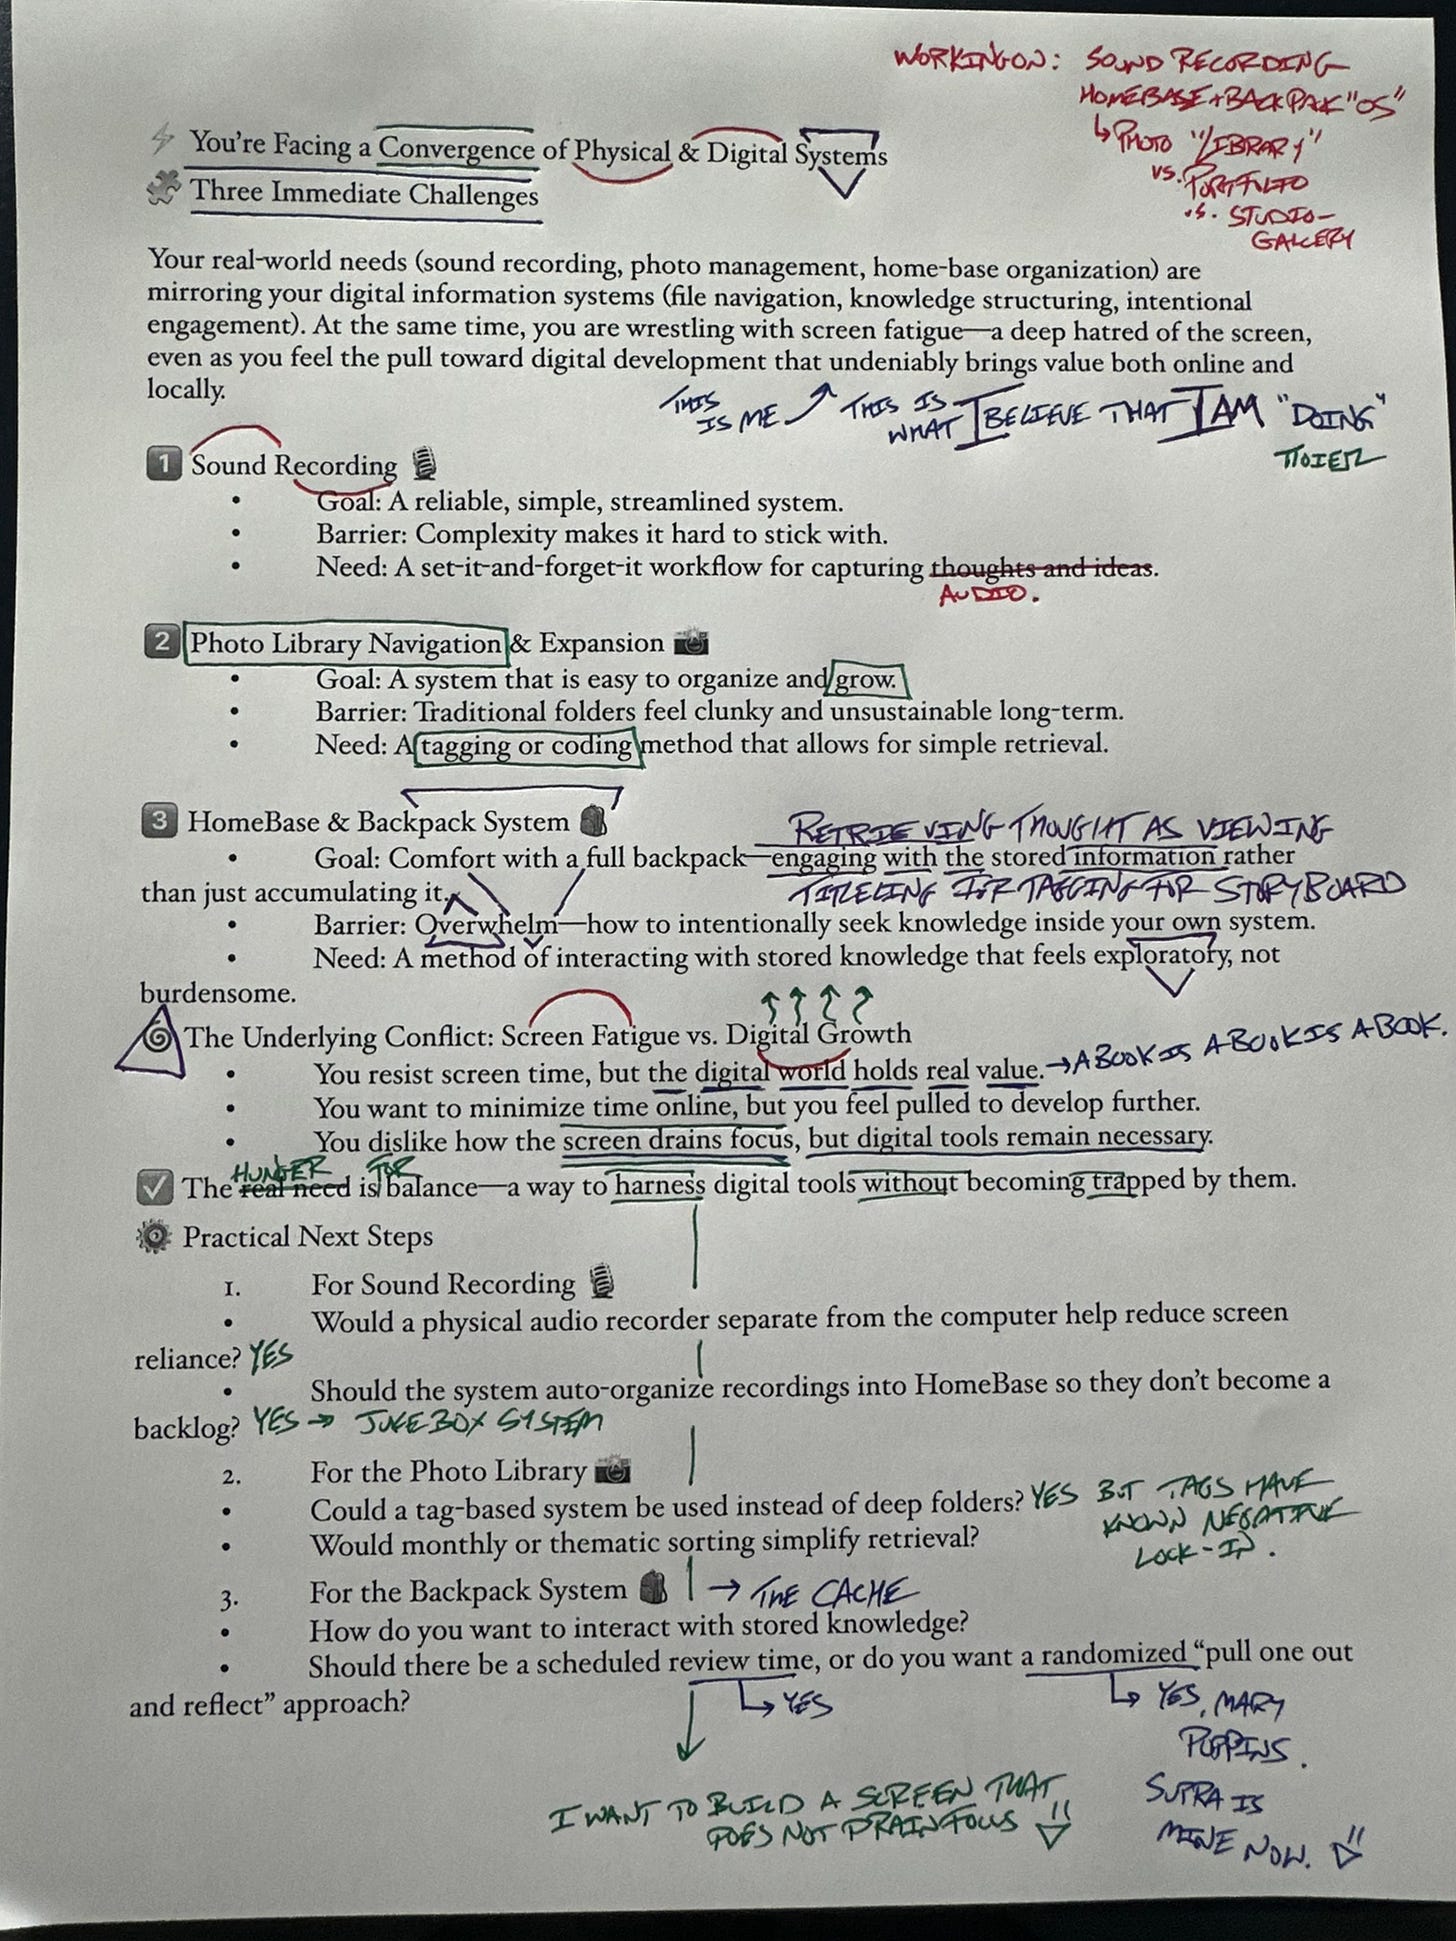 WORKING ON: SOUND RECORDING
HOMEBASE + BACKPAK "OS"
↳ PHOTO "LIBRARY"
vs. PORTFOLIO
vs. STUDIO-
GALLERY
⚡ You're Facing a Convergence of Physical & Digital Systems
🧩 Three Immediate Challenges
Your real-world needs (sound recording, photo management, home-base organization) are
mirroring your digital information systems (file navigation, knowledge structuring, intentional
engagement). At the same time, you are wrestling with screen fatigue—a deep hatred of the screen,
even as you feel the pull toward digital development that undeniably brings value both online and
locally.
THIS IS ME
THIS IS WHAT I BELIEVE THAT I AM "DOING"
1 Sound Recording 🎙
• Goal: A reliable, simple, streamlined system.
• Barrier: Complexity makes it hard to stick with.
• Need: A set-it-and-forget-it workflow for capturing thoughts and ideas.
AUDIO.
2 Photo Library Navigation & Expansion 📸
• Goal: A system that is easy to organize and grow.
• Barrier: Traditional folders feel clunky and unsustainable long-term.
• Need: A tagging or coding method that allows for simple retrieval.
3 HomeBase & Backpack System 🎒
RETRIEVING THOUGHT AS VIEWING
• Goal: Comfort with a full backpack—engaging with the stored information rather
than just accumulating it.
TITELING FOR TAGGING FOR STORYBOARD
• Barrier: Overwhelm—how to intentionally seek knowledge inside your own system.
• Need: A method of interacting with stored knowledge that feels exploratory, not
burdensome.
🌀 The Underlying Conflict: Screen Fatigue vs. Digital Growth
• You resist screen time, but the digital world holds real value. → A BOOK IS A BOOK IS A BOOK.
• You want to minimize time online, but you feel pulled to develop further.
• You dislike how the screen drains focus, but digital tools remain necessary.
HUNGER FOR
✅ The real need is balance—a way to harness digital tools without becoming trapped by them.
⚙ Practical Next Steps
1. For Sound Recording 🎙
• Would a physical audio recorder separate from the computer help reduce screen
reliance? YES
• Should the system auto-organize recordings into HomeBase so they don't become a
backlog? YES → JUKEBOX SYSTEM
2. For the Photo Library 📸
• Could a tag-based system be used instead of deep folders? YES BUT TAGS HAVE
KNOWN NEGATIVE
LOCK-IN.
• Would monthly or thematic sorting simplify retrieval?
3. For the Backpack System 🎒 → THE CACHE
• How do you want to interact with stored knowledge?
• Should there be a scheduled review time, or do you want a randomized "pull one out
and reflect" approach?
↳ YES
↳ YES, MARY
POPPINS.
I WANT TO BUILD A SCREEN THAT
DOES NOT DRAIN FOCUS
SUPRA IS
MINE NOW.